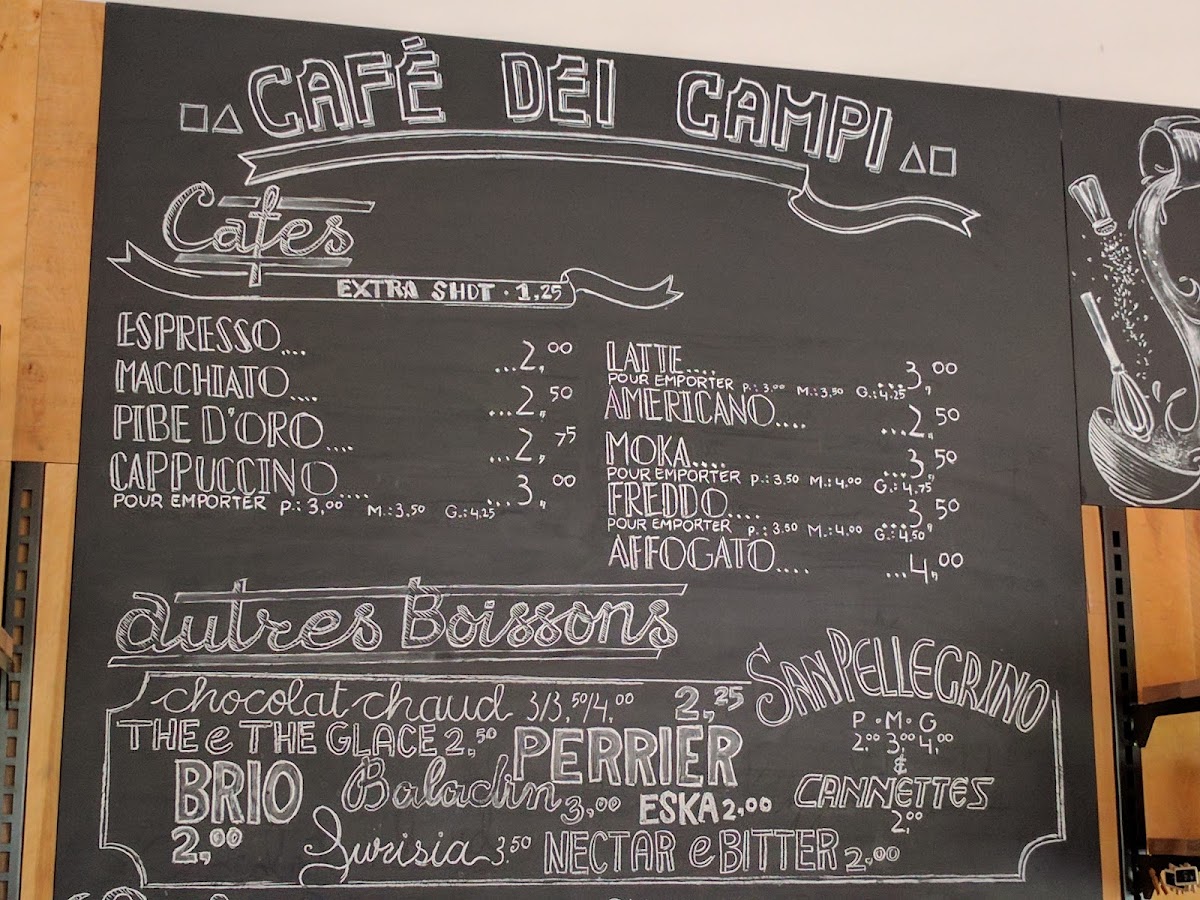 CAFÉ DEI CAMPI
Cafes
EXTRA SHOT · 1,25
ESPRESSO.... ...2,00
MACCHIATO.... ...2,50
PIBE D'ORO.... ...2,75
CAPPUCCINO.... ...3,00
POUR EMPORTER P.: 3,00 M.: 3,50 G.: 4,25
LATTE.... ...3,00
POUR EMPORTER P.: 3,00 M.: 3,50 G.: 4,25
AMERICANO.... ...2,50
MOKA.... ...3,50
POUR EMPORTER P.: 3,50 M.: 4,00 G.: 4,75
FREDDO.... ...3,50
POUR EMPORTER P.: 3,50 M.: 4,00 G.: 4,50
AFFOGATO.... ...4,00
autres Boissons
chocolat chaud 3/3,50/4,00
THE e THE GLACE 2,50
2,25
PERRIER
BRIO
2,00
Baladin 3,00
ESKA 2,00
Lurisia 3.50
NECTAR e BITTER 2,00
SANPELLEGRINO
P · M · G
2,00 3,00 4,00
&
CANNETTES
2,00